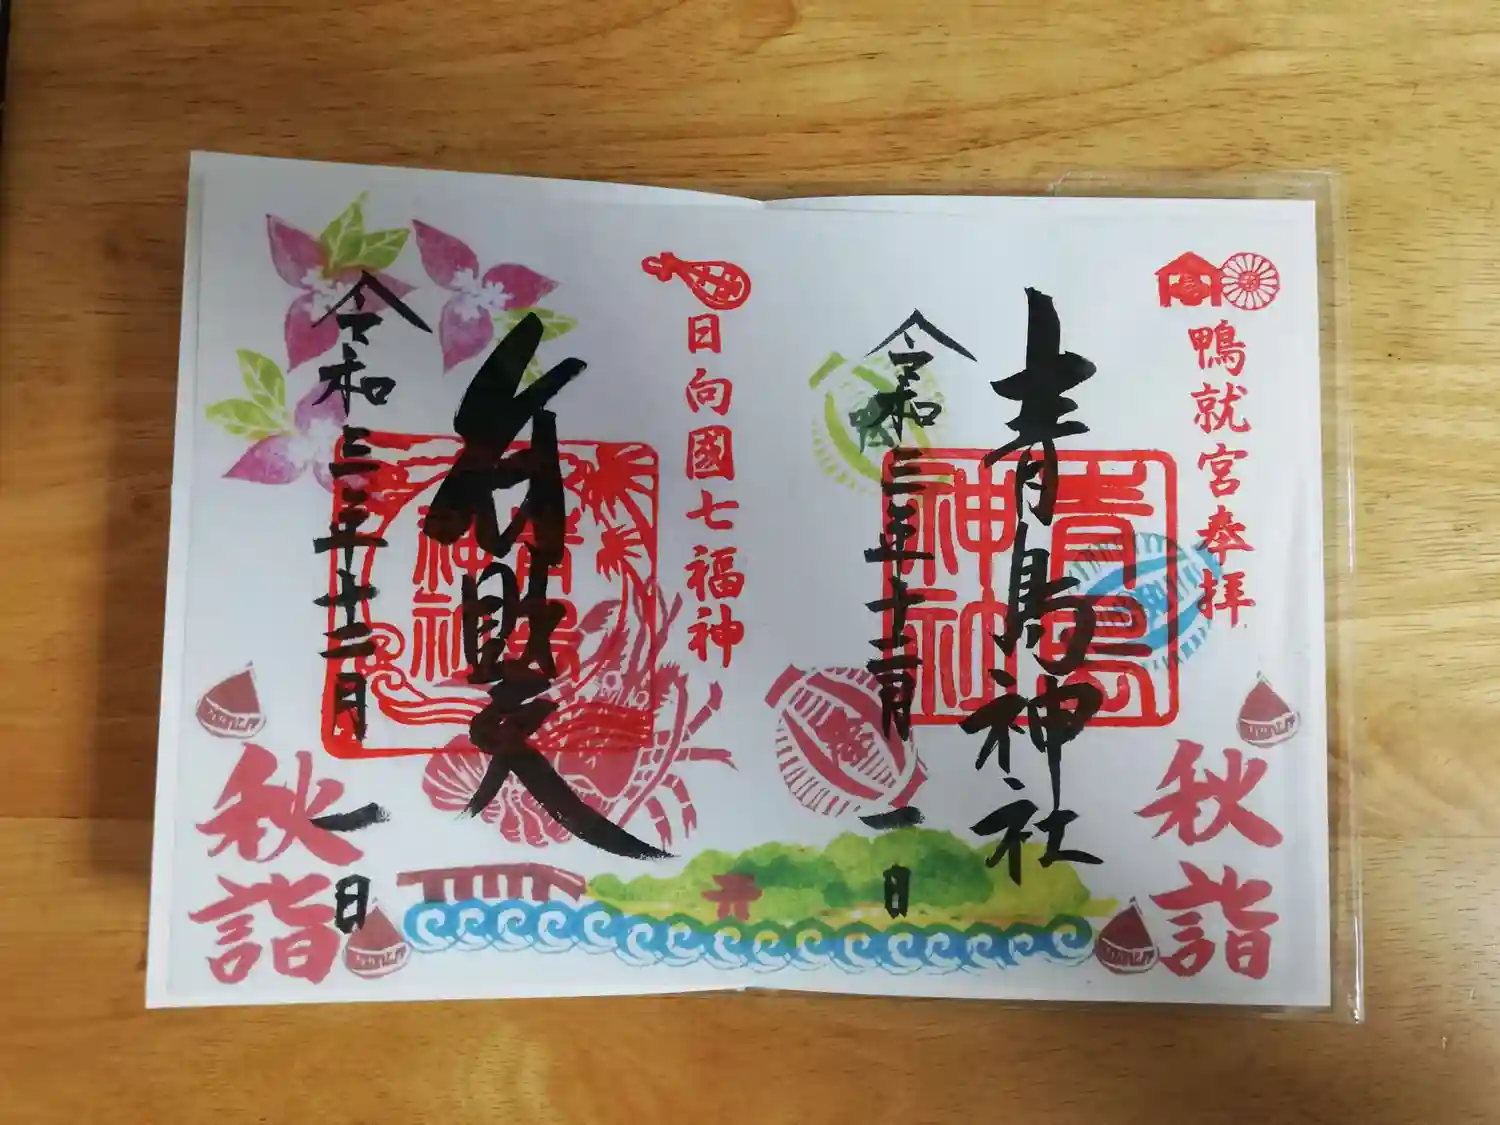 鴨就宮奉拝
青島神社
青島
神社
令和三年十二月一日
秋詣
日向國七福神
弁財天
青島
神社
令和三年十二月一日
秋詣